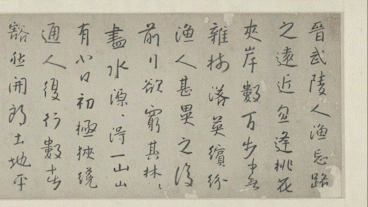 晉武陵人漁忘路
之遠近忽逢桃花
夾岸數百步中無
雜樹落英繽紛
漁人甚異之復
前行欲窮其林〻
盡水源得一山山
有小口初極狹纔
通人復行數
豁然開朗土地平